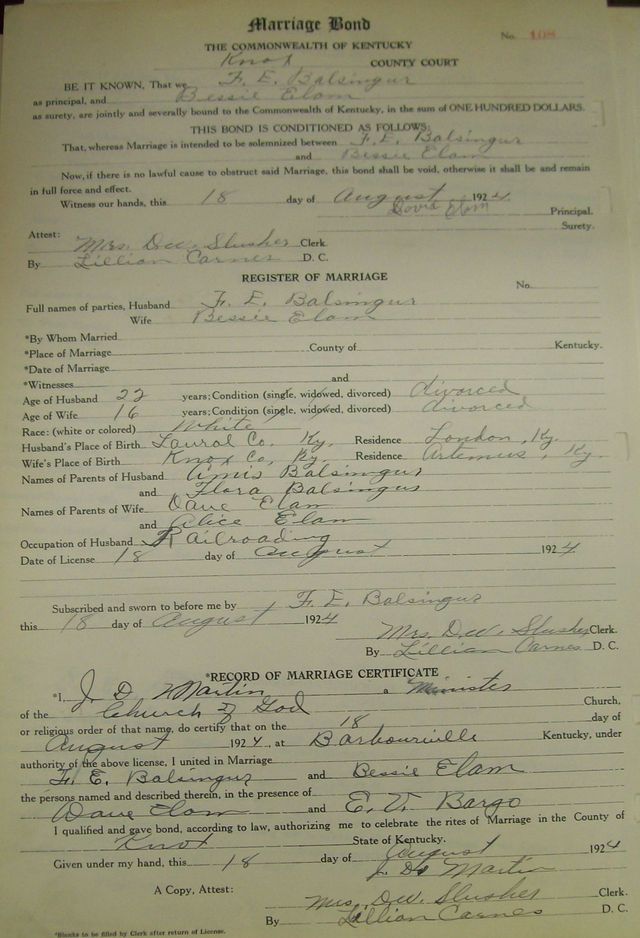 Marriage Bond
No. 108
THE COMMONWEALTH OF KENTUCKY
Knox COUNTY COURT
BE IT KNOWN, That we F. E. Balsingur
as principal, and Bessie Elam
as surety, are jointly and severally bound to the Commonwealth of Kentucky, in the sum of ONE HUNDRED DOLLARS.
THIS BOND IS CONDITIONED AS FOLLOWS:
That, whereas Marriage is intended to be solemnized between F. E. Balsingur
and Bessie Elam
Now, if there is no lawful cause to obstruct said Marriage, this bond shall be void, otherwise it shall be and remain
in full force and effect.
Witness our hands, this 18 day of August 1924
David Elam Principal.
Surety.
Attest:
Mrs. D.W. Slusher Clerk
By Lillian Carnes D. C.
REGISTER OF MARRIAGE
No.
Full names of parties, Husband F. E. Balsingur
Wife Bessie Elam
*By Whom Married
*Place of Marriage County of Kentucky.
*Date of Marriage
*Witnesses and
Age of Husband 22 years; Condition (single, widowed, divorced) divorced
Age of Wife 16 years; Condition (single, widowed, divorced) divorced
Race: (white or colored) White
Husband's Place of Birth Laural Co. Ky. Residence London, Ky.
Wife's Place of Birth Knox Co, Ky. Residence Artemus, Ky.
Names of Parents of Husband Balsingur
and Flora Balsingur
Names of Parents of Wife Dave Elam
and Alice Elam
Occupation of Husband Railroading
Date of License 18 day of August 1924
Subscribed and sworn to before me by F. E. Balsingur
this 18 day of August 1924
Mrs. D.W. Slusher Clerk.
By Lillian Carnes D. C.
*RECORD OF MARRIAGE CERTIFICATE
*I, J. D. Martin a Minister
of the Church of God Church,
or religious order of that name, do certify that on the 18 day of
August 1924, at Barbourville Kentucky, under
authority of the above license, I united in Marriage
F. E. Balsingur and Bessie Elam
the persons named and described therein, in the presence of
Dave Elam and E. V. Bargo
I qualified and gave bond, according to law, authorizing me to celebrate the rites of Marriage in the County of
Knox State of Kentucky.
Given under my hand, this 18 day of August 1924
J. D. Martin
A Copy, Attest:
Mrs. D.W. Slusher Clerk.
By Lillian Carnes D. C.
*Blanks to be filled by Clerk after return of License.